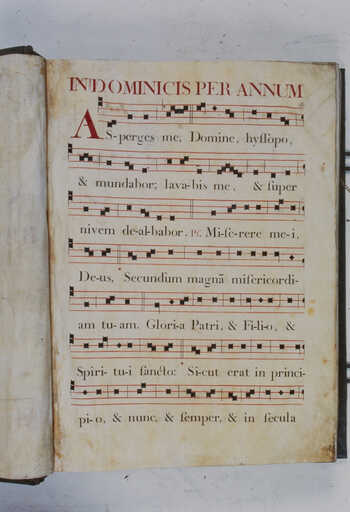 IN DOMINICIS PER ANNUM
AS-perges me, Domine, hyſſôpo,
& mundabor; lava-bis me, & ſuper
nivem de-al-babor. Pſ. Mi-ſe-rere me-i,
De-us, Secundum magnã miſericordi-
am tu-am. Glori-a Patri, & Fi-li-o, &
Spîri-tu-i ſancto: Si-cut erat in princi-
pi-o, & nunc, & ſemper, & in ſecula